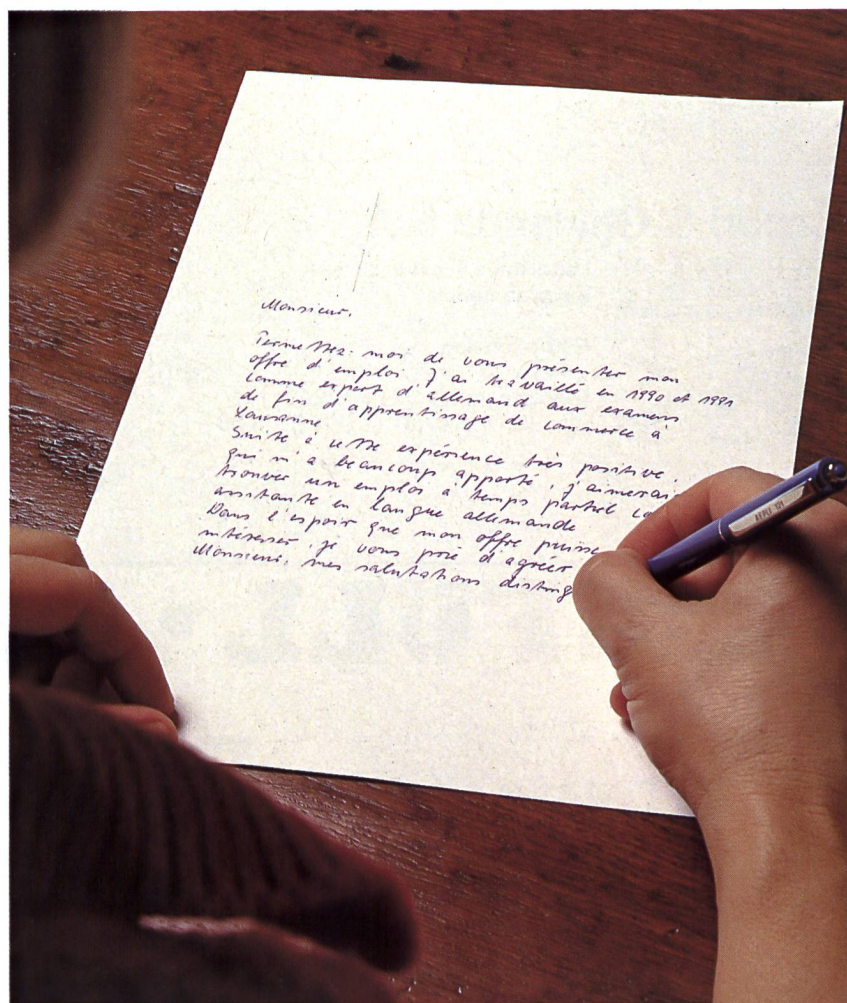 Monsieur,
Permettez-moi de vous présenter mon
offre d'emploi. J'ai travaillé en 1990 et 1991
comme expert d'allemand aux examens
de fin d'apprentissage de commerce à
Lausanne
Suite à cette expérience très positive,
qui m'a beaucoup apporté, j'aimerai
trouver un emploi à temps partiel co
assitante en langue allemande
Dans l'espoir que mon offre puisse
intéresser, je vous prie d'agréer
Monsieur, mes salutations disting